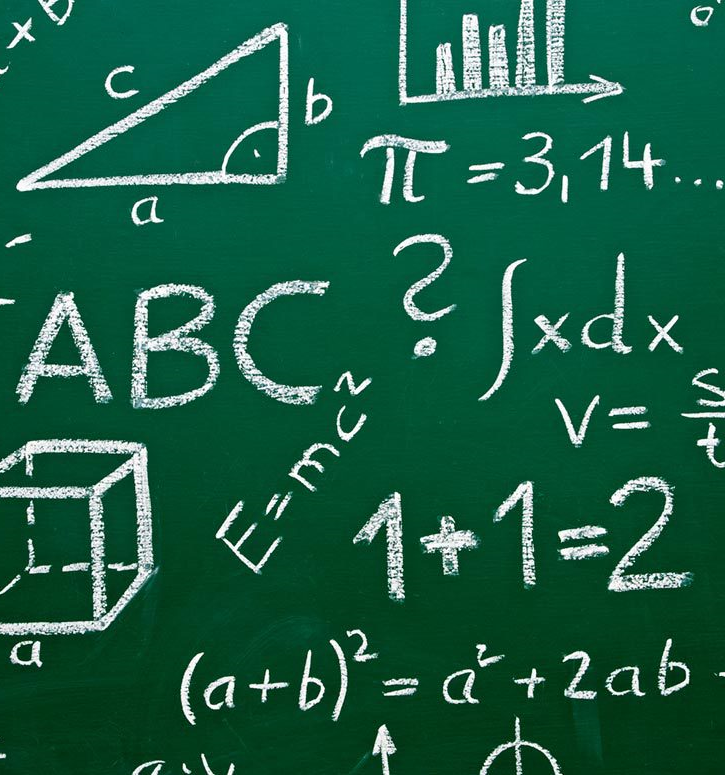 c
b
a
π = 3,14...
?
∫xdx
ABC
v = s/t
E=mc²
1+1=2
a
(a+b)² = a² + 2ab